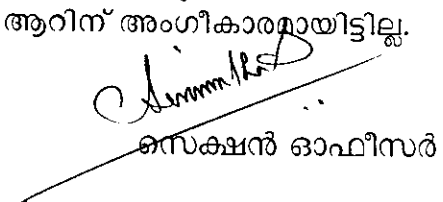 ആറിന് അംഗീകാരമായിട്ടില്ല.
സെക്ഷൻ ഓഫീസർ